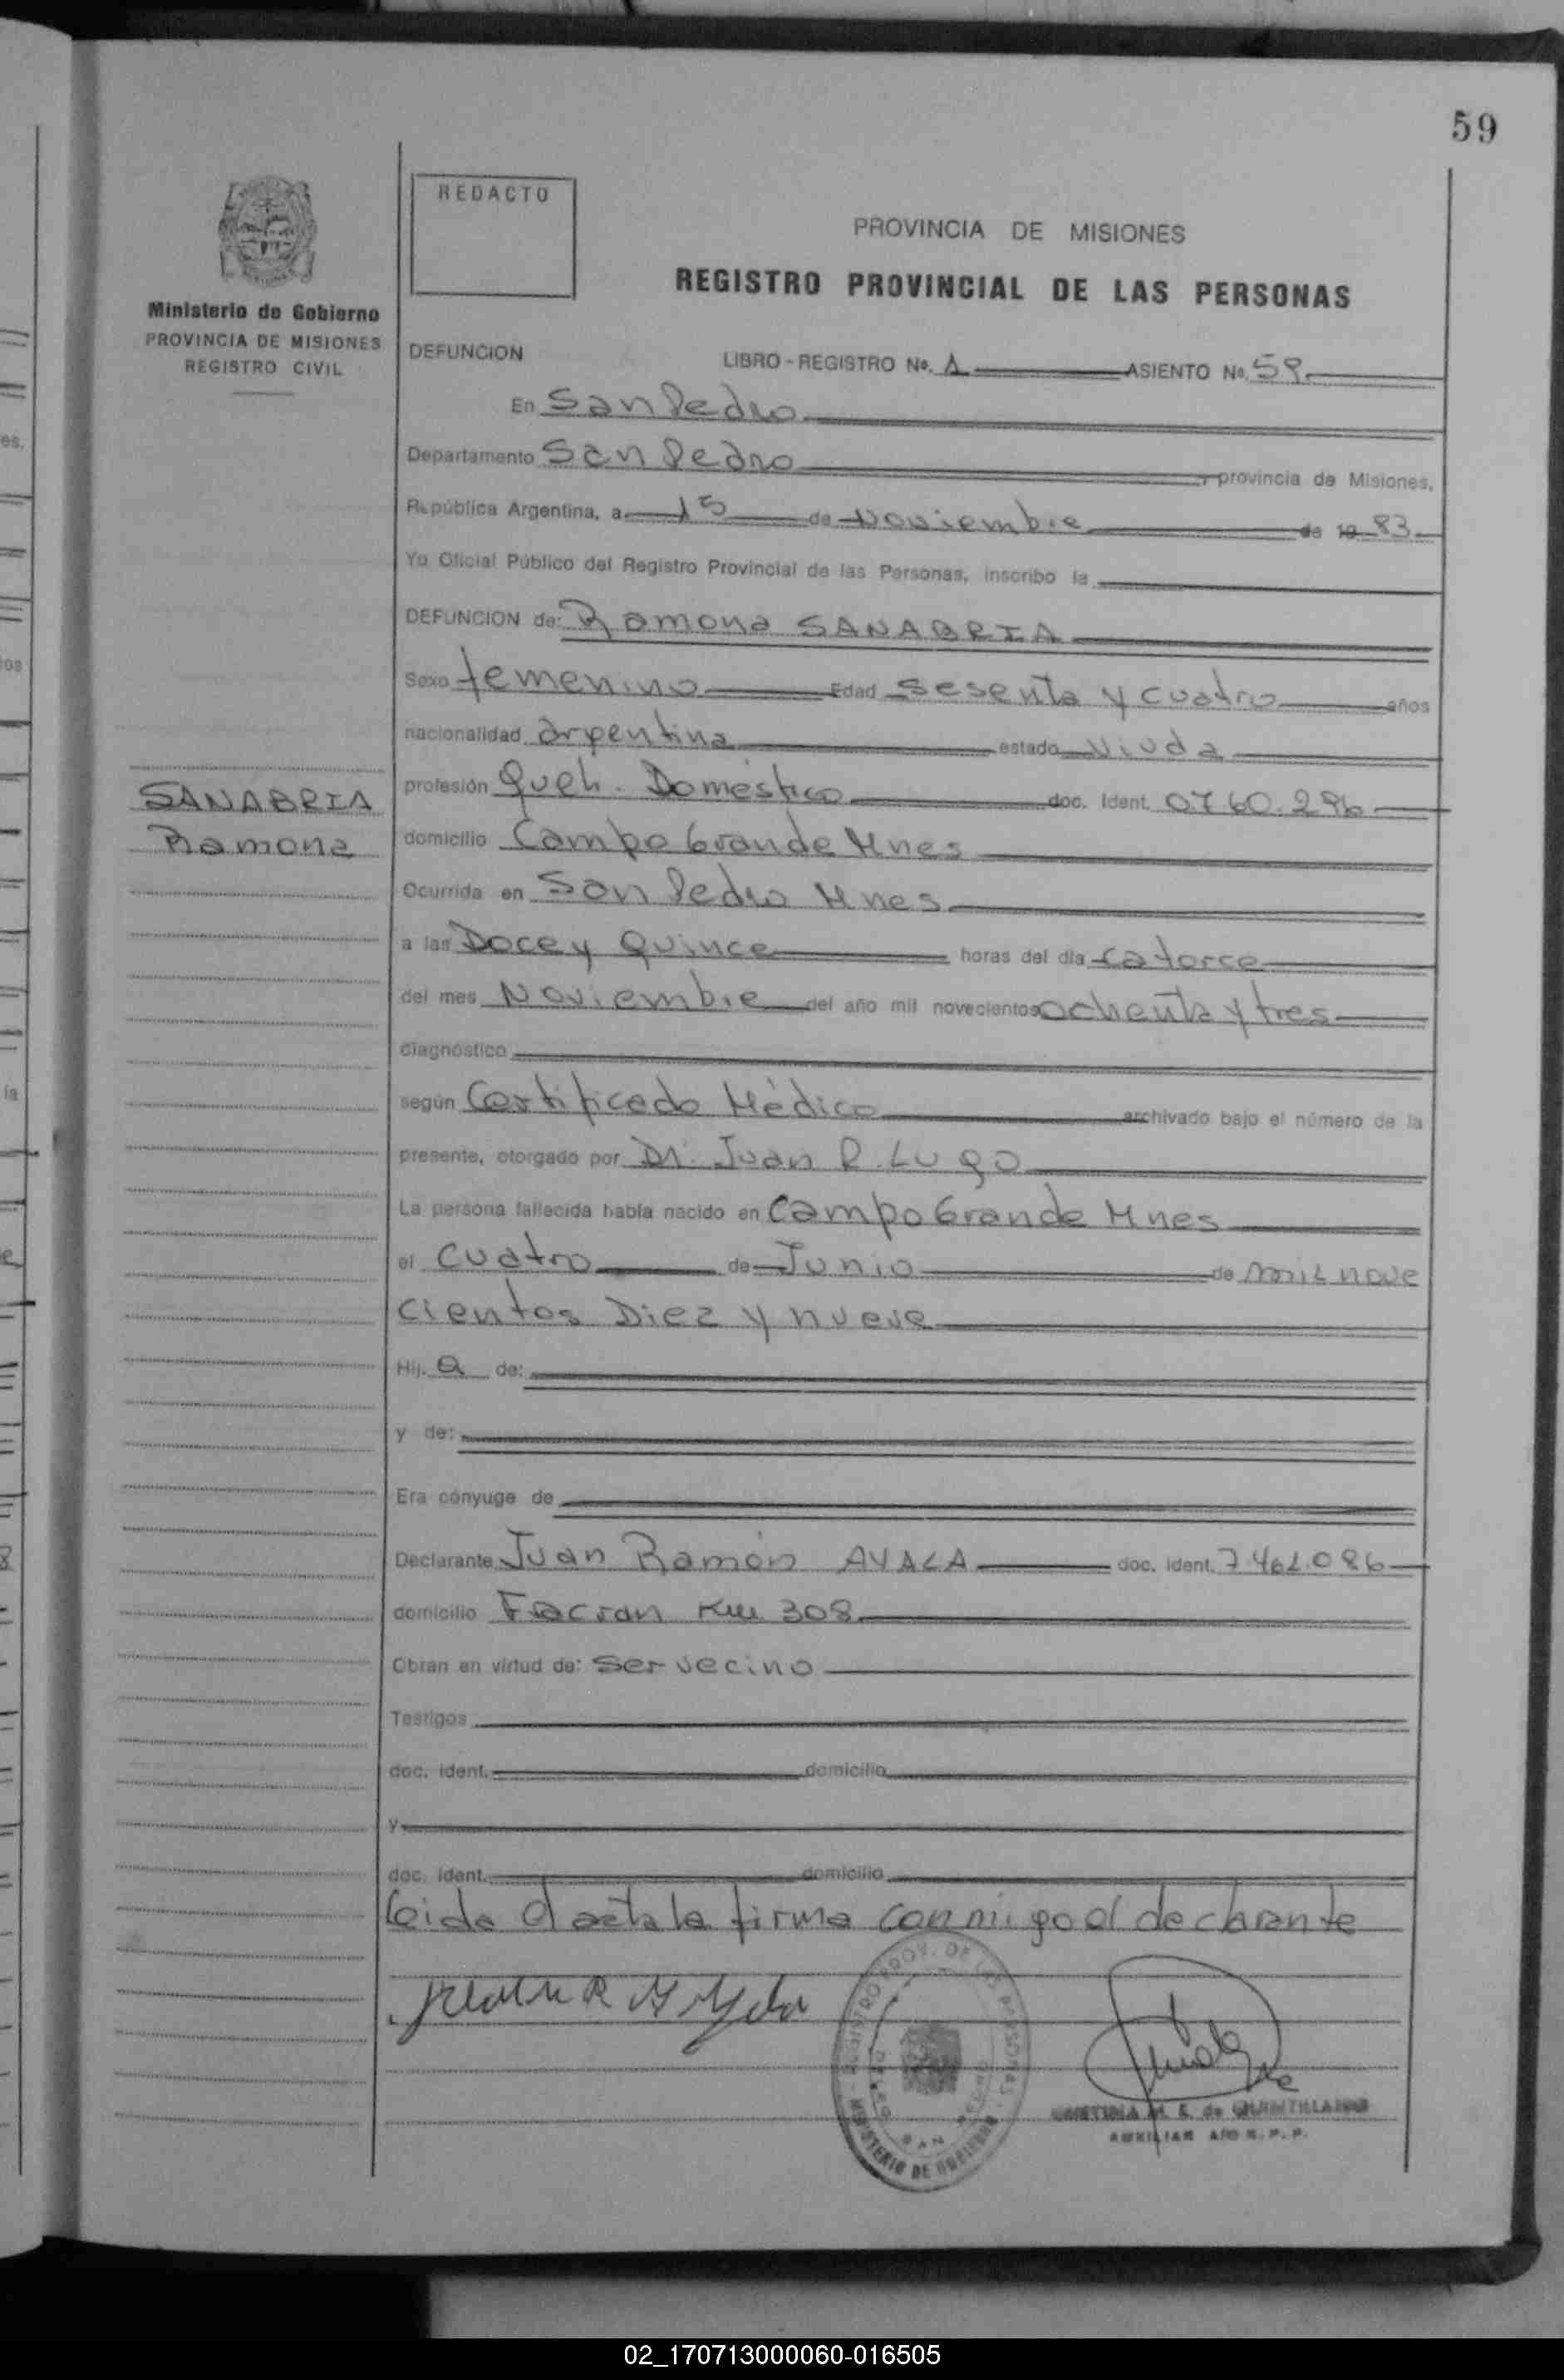 59
REDACTO
PROVINCIA DE MISIONES
REGISTRO PROVINCIAL DE LAS PERSONAS
Ministerio de Gobierno
PROVINCIA DE MISIONES
REGISTRO CIVIL
DEFUNCION LIBRO - REGISTRO No. A ASIENTO No. 59
En San Pedro
Departamento San Pedro, provincia de Misiones,
República Argentina, a 15 de Noviembre de 19 83
Yo Oficial Público del Registro Provincial de las Personas, inscribo la
DEFUNCION de: Ramona SANABRIA
Sexo femenino Edad sesenta y cuatro años
nacionalidad argentina estado viuda
SANABRIA
Ramona
profesión Queh. Doméstico doc. Ident. 0760.296
domicilio Campo Grande Mnes
Ocurrida en San Pedro Mnes
a las Doce y Quince horas del día catorce
del mes Noviembre del año mil novecientos ochenta y tres
diagnóstico
según Certificado Médico archivado bajo el número de la
presente, otorgado por Dr. Juan R. Lugo
La persona fallecida había nacido en Campo Grande Mnes
el cuatro de Junio de mil nove
cientos Diez y nueve
Hij. a de:
y de:
Era cónyuge de
Declarante Juan Ramón AYALA doc. ident. 7.462.086
domicilio Fracran Km 308
Obran en virtud de: ser vecino
Testigos
doc. ident. domicilio
y
doc. ident. domicilio
leida el acta la firma conmigo el declarante
MINISTERIO DE GOBIERNO
M. E. de QUINTILLANO
AUXILIAR A/C R. P. P.
02_170713000060-016505